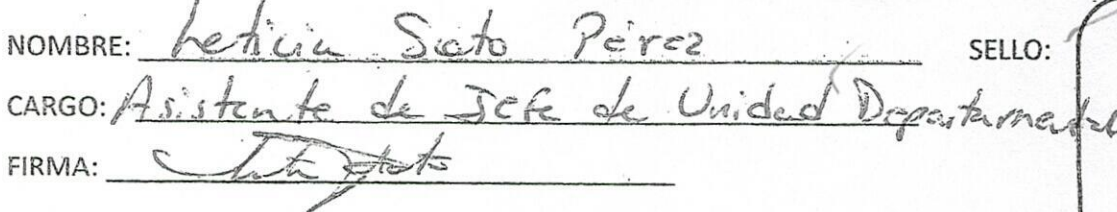 NOMBRE: Leticia Soto Pérez SELLO:
CARGO: Asistente de Jefe de Unidad Departamental
FIRMA: